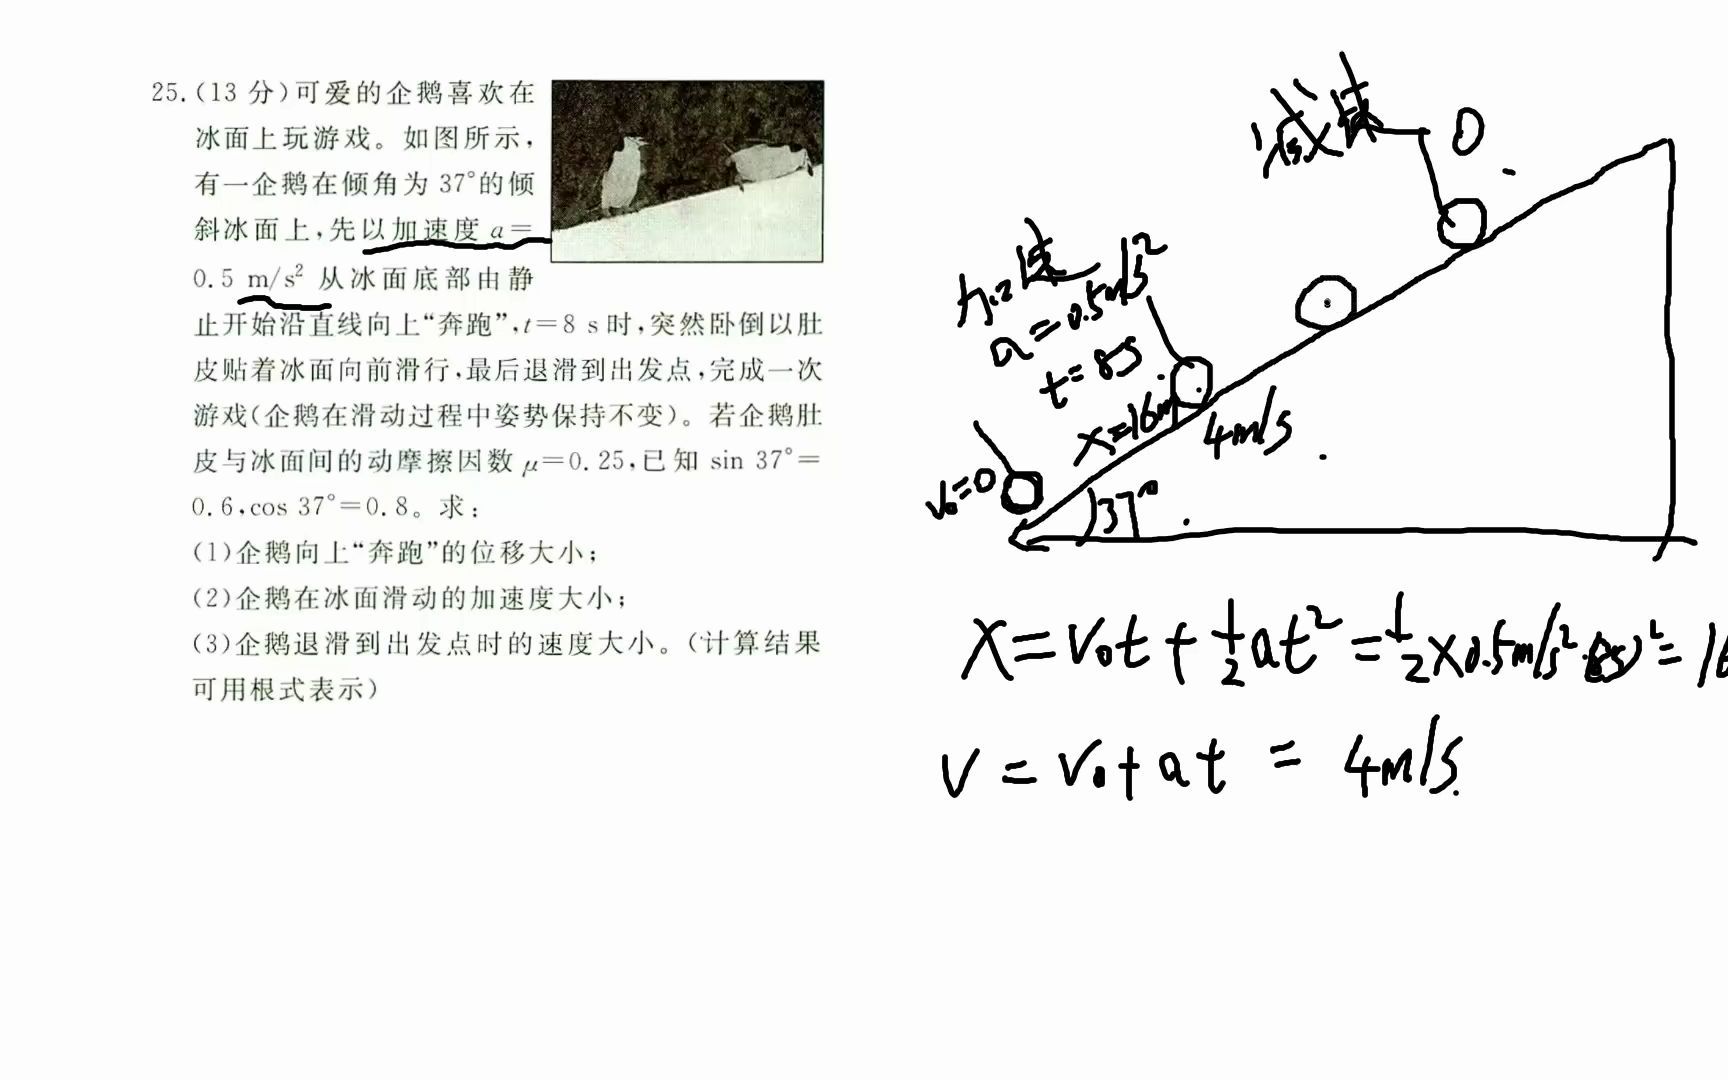 25.(13 分)可爱的企鹅喜欢在
冰面上玩游戏。如图所示,
有一企鹅在倾角为 37°的倾
斜冰面上,先以加速度 a=
0.5 m/s² 从冰面底部由静
止开始沿直线向上“奔跑”,t=8 s时,突然卧倒以肚
皮贴着冰面向前滑行,最后退滑到出发点,完成一次
游戏(企鹅在滑动过程中姿势保持不变)。若企鹅肚
皮与冰面间的动摩擦因数 μ=0.25,已知 sin 37°=
0.6,cos 37°=0.8。求:
(1)企鹅向上“奔跑”的位移大小;
(2)企鹅在冰面滑动的加速度大小;
(3)企鹅退滑到出发点时的速度大小。(计算结果
可用根式表示)
减速
0
加速
a=0.5m/s²
t=8s
x=16m
4m/s
v₀=0
37°
x=v₀t+½at²=½×0.5m/s²·(8s)²=16
v=v₀+at=4m/s.